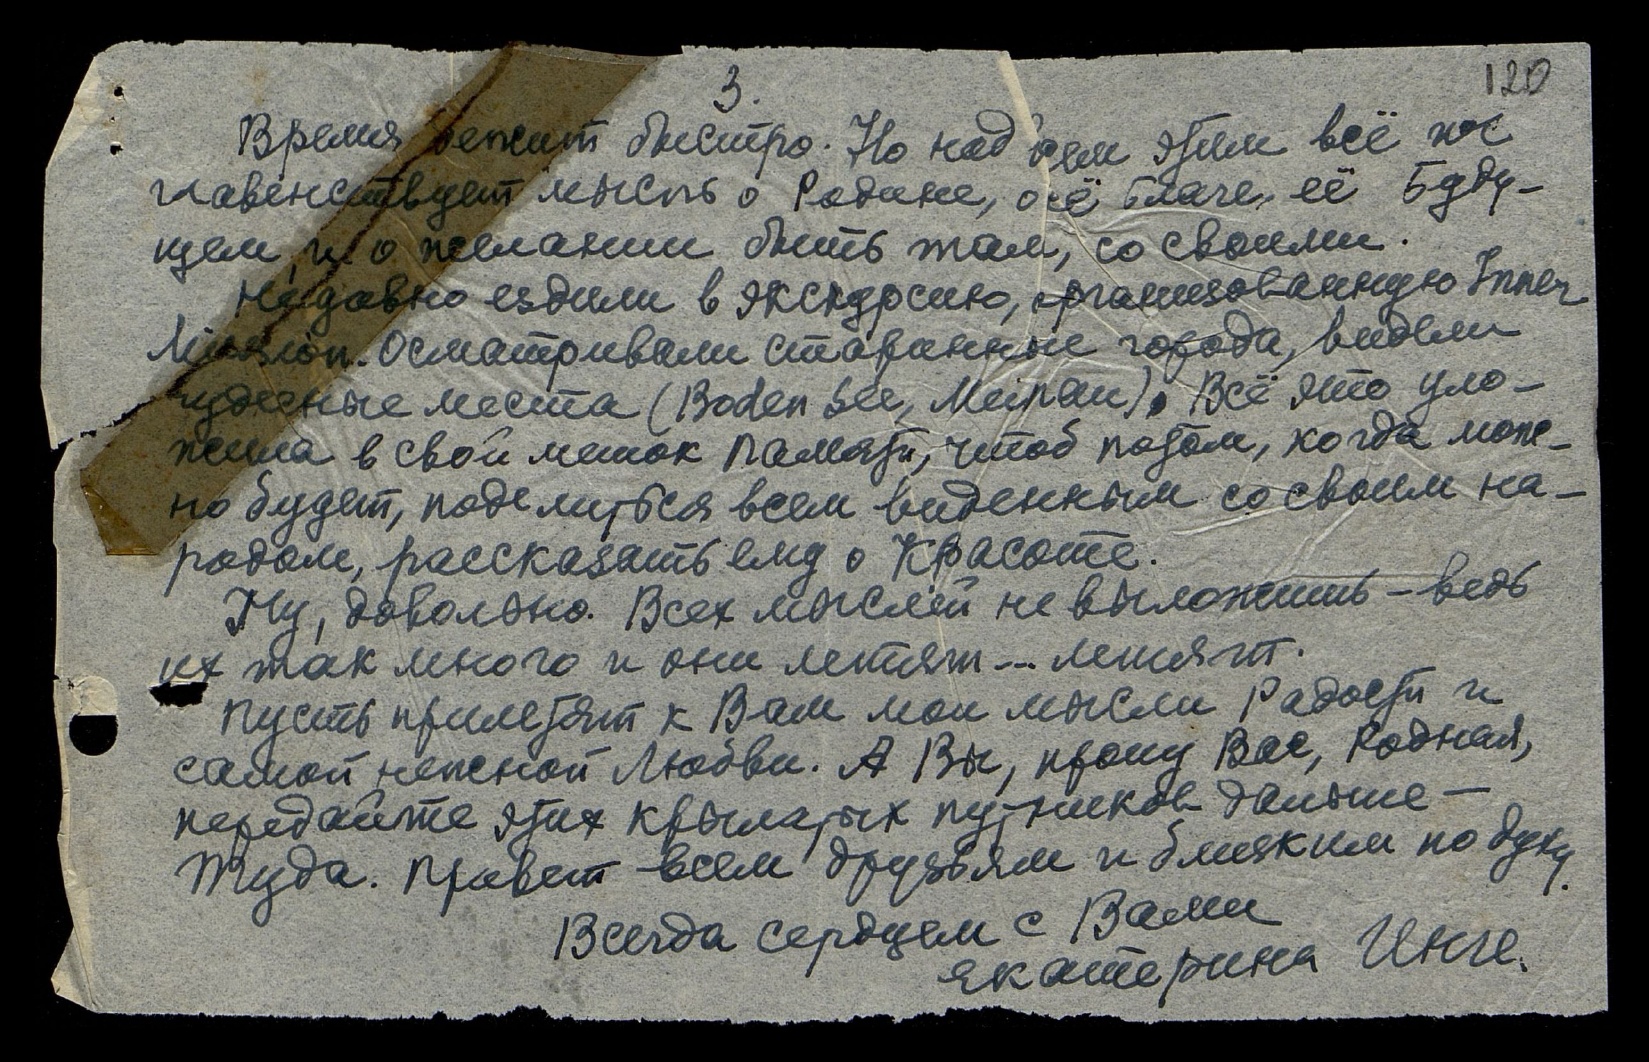 3.
120
Время бежит быстро. Но над всем этим всё же
главенствует мысль о Родине, о её благе, её Буду-
щем, и о желании быть там, со своими.
Недавно ездили в экскурсию, организованную Inner
Mission. Осматривали старинные города, видели
чудесные места (Boden See, Meinau). Всё это уло-
жила в свой мешок памяти, чтоб потом, когда мож-
но будет, поделиться всем виденным со своим на-
родом, рассказать ему о Красоте.
Ну, довольно. Всех мыслей не выложишь – ведь
их так много и они летят... летят.
Пусть прилетят к Вам мои мысли Радости и
самой нежной Любви. А Вы, прошу Вас, Родная,
передайте этих крылатых путников дальше –
Туда. Привет всем друзьям и близким по духу.
Всегда сердцем с Вами
Екатерина Инге.